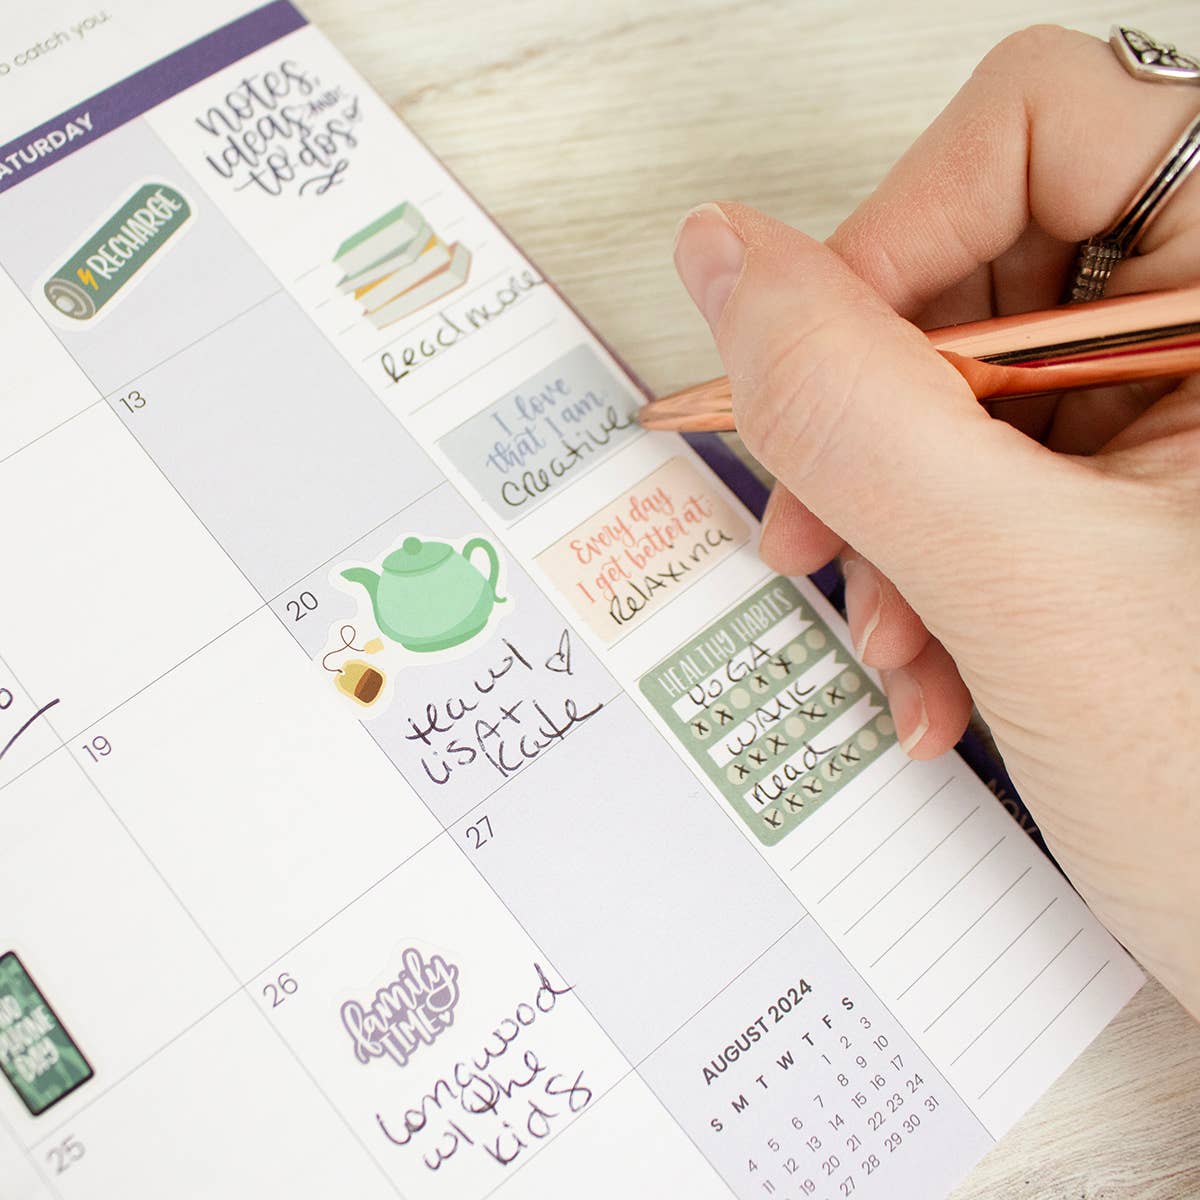 o catch you.
ATURDAY
notes,
ideas AND
to-dos
RECHARGE
Read more
13
I love
that I am
creative
Every day
I get better at:
Relaxing
20
tea w/
Lisa +
Kate
HEALTHY HABITS
YOGA
x x x x
WALK
x x x x x
Read
x x x x x
19
27
26
family
TIME
Longwood
w/ the
kids
PHONE
DAY
25
NOV
AUGUST 2024
S M T W T F S
1 2 3
4 5 6 7 8 9 10
11 12 13 14 15 16 17
19 20 21 22 23 24
27 28 29 30 31